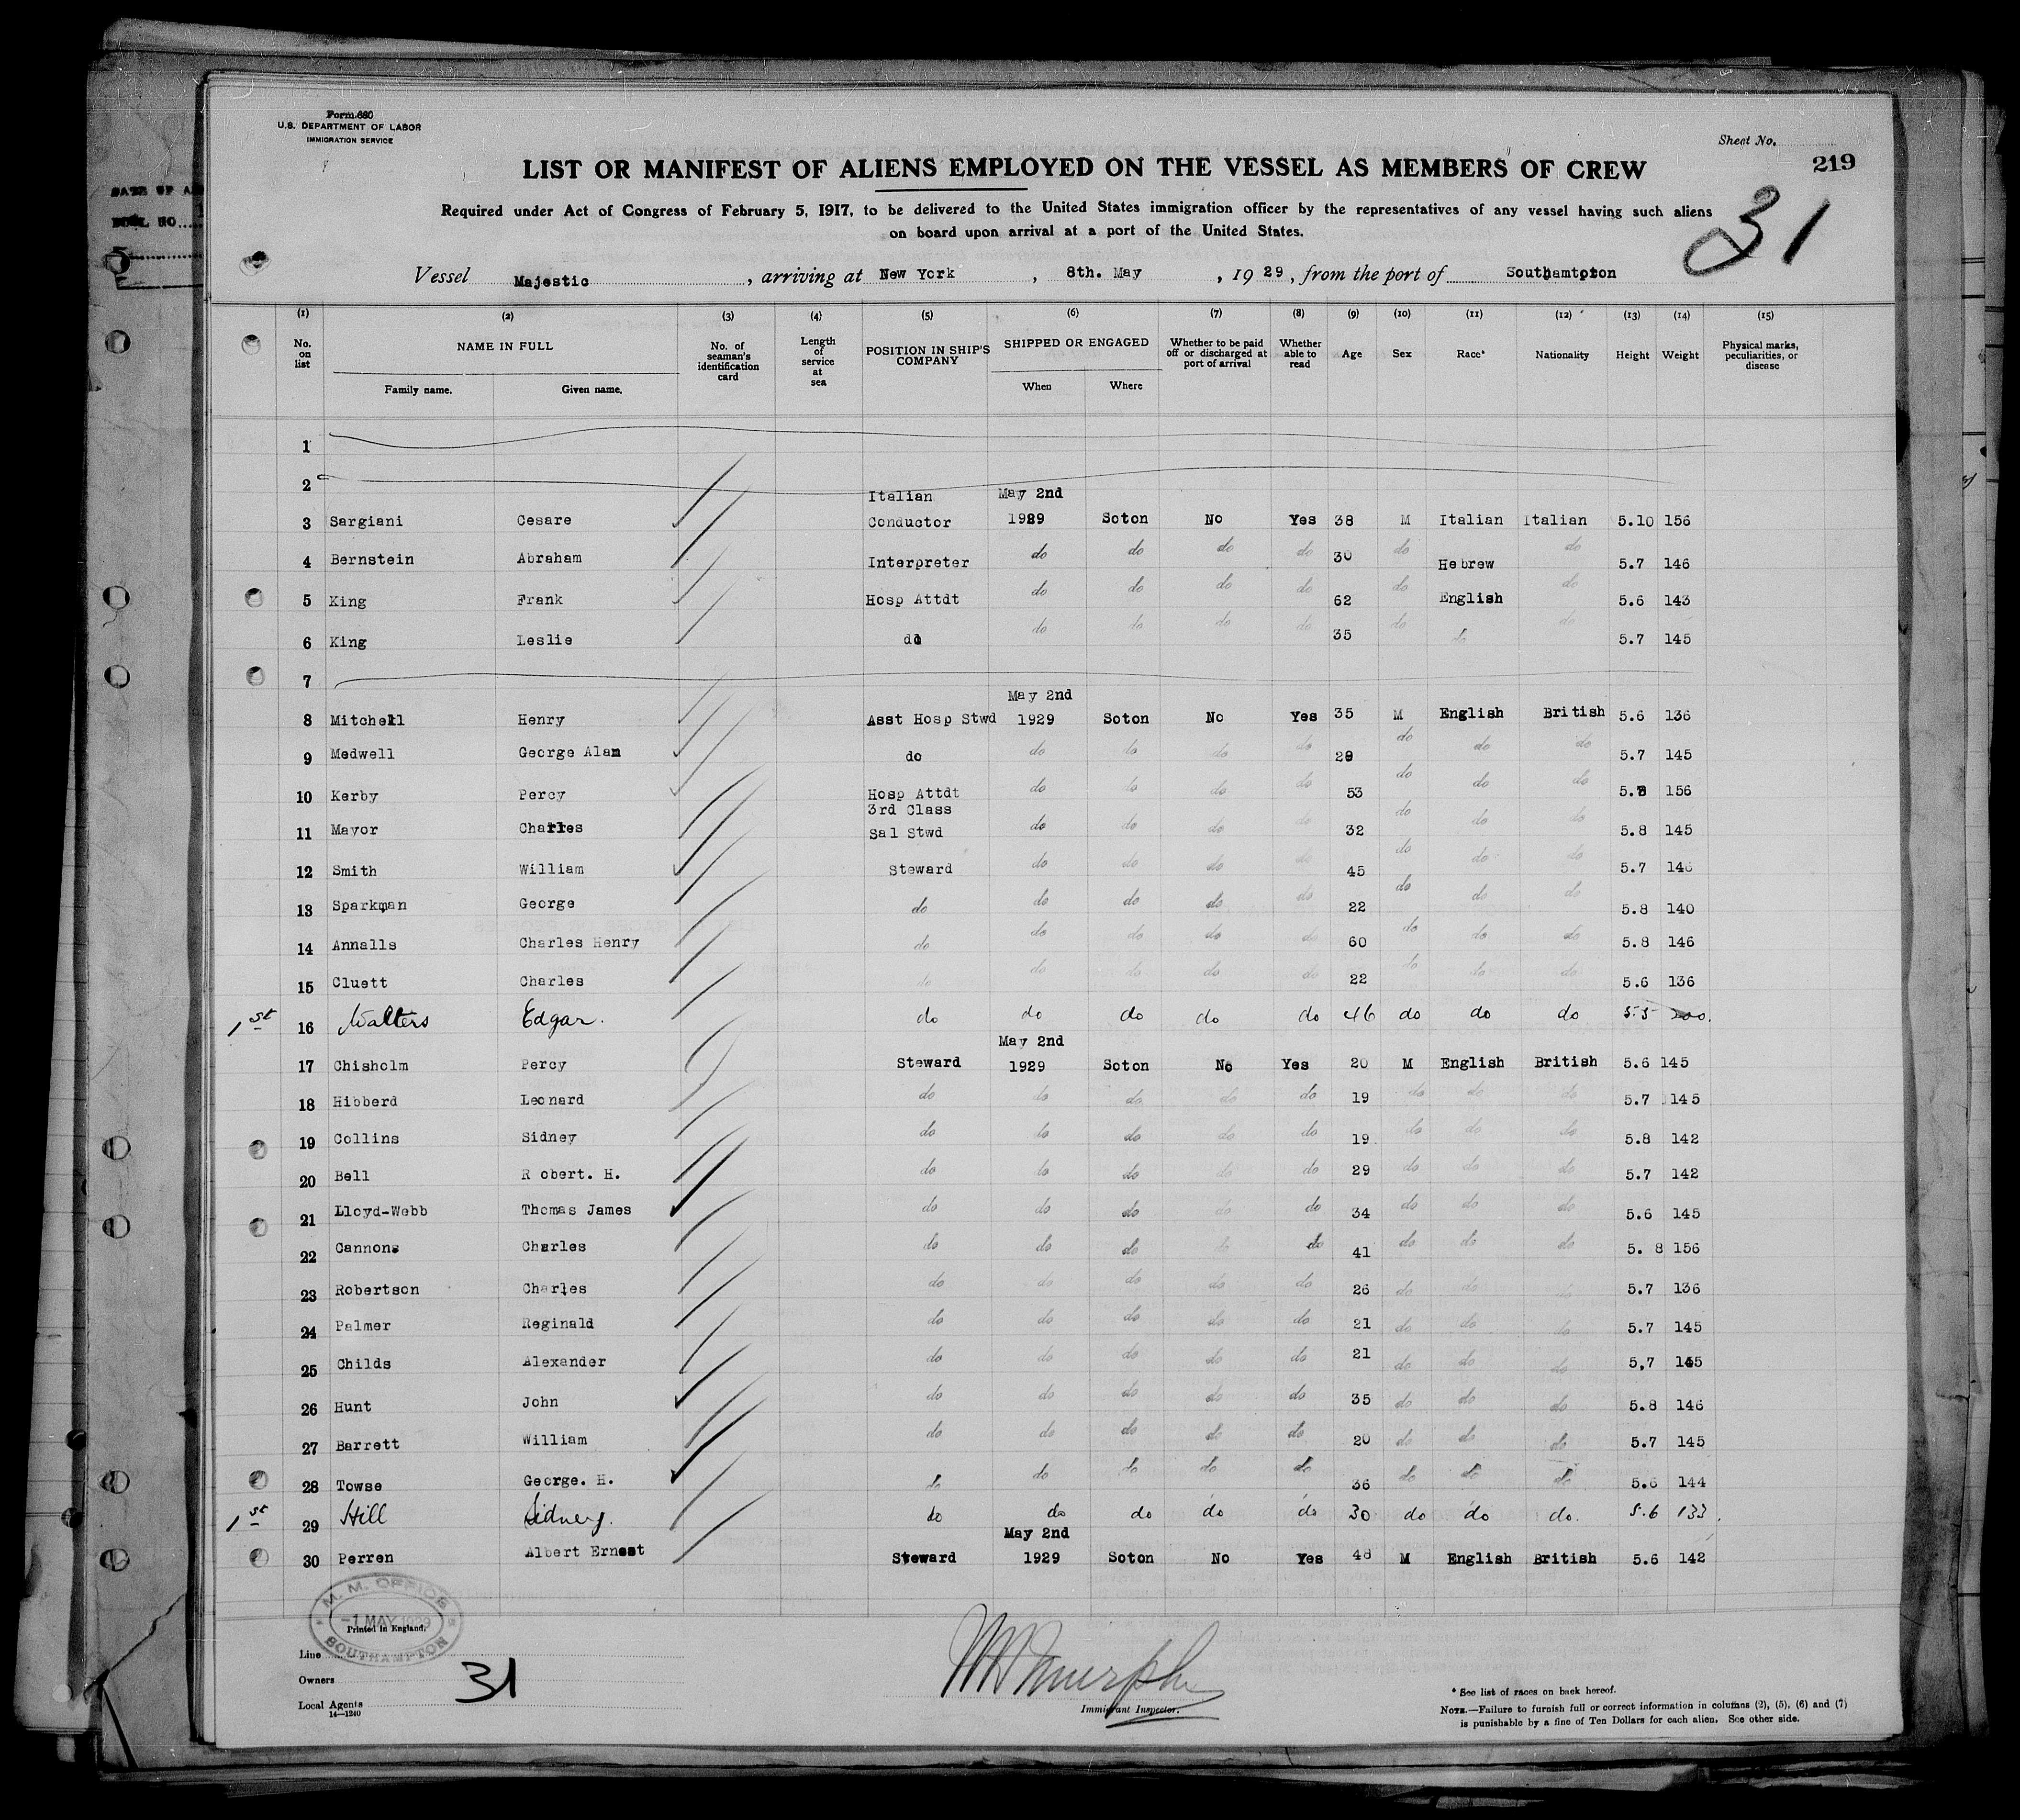 Form 680
U.S. DEPARTMENT OF LABOR
IMMIGRATION SERVICE
Sheet No.
219
LIST OR MANIFEST OF ALIENS EMPLOYED ON THE VESSEL AS MEMBERS OF CREW
Required under Act of Congress of February 5, 1917, to be delivered to the United States immigration officer by the representatives of any vessel having such aliens
on board upon arrival at a port of the United States.
31
Vessel Majestic, arriving at New York, 8th. May, 1929, from the port of Southampton
(1) (2) (3) (4) (5) (6) (7) (8) (9) (10) (11) (12) (13) (14) (15)
No. on list NAME IN FULL Family name. Given name. No. of seaman's identification card Length of service at sea POSITION IN SHIP'S COMPANY SHIPPED OR ENGAGED When Where Whether to be paid off or discharged at port of arrival Whether able to read Age Sex Race* Nationality Height Weight Physical marks, peculiarities, or disease
1
2
Italian May 2nd
3 Sargiani Cesare Conductor 1929 Soton No Yes 38 M Italian Italian 5.10 156
4 Bernstein Abraham Interpreter do do do do 30 do Hebrew do 5.7 146
5 King Frank Hosp Attdt do do do do 62 do English do 5.6 143
6 King Leslie do do do do do 35 do do do 5.7 145
7
May 2nd
8 Mitchell Henry Asst Hosp Stwd 1929 Soton No Yes 35 M English British 5.6 136
9 Medwell George Alan do do do do do 29 do do do 5.7 145
10 Kerby Percy Hosp Attdt do do do do 53 do do do 5.8 156
3rd Class
11 Mayor Charles Sal Stwd do do do do 32 do do do 5.8 145
12 Smith William Steward do do do do 45 do do do 5.7 146
13 Sparkman George do do do do do 22 do do do 5.8 140
14 Annalls Charles Henry do do do do do 60 do do do 5.8 146
15 Cluett Charles do do do do do 22 do do do 5.6 136
1st 16 Walters Edgar. do do do do do 46 do do do 5.5
May 2nd
17 Chisholm Percy Steward 1929 Soton No Yes 20 M English British 5.6 145
18 Hibberd Leonard do do do do do 19 do do do 5.7 145
19 Collins Sidney do do do do do 19 do do do 5.8 142
20 Bell R obert. H. do do do do do 29 do do do 5.7 142
21 Lloyd-Webb Thomas James do do do do do 34 do do do 5.6 145
22 Cannons Charles do do do do do 41 do do do 5. 8 156
23 Robertson Charles do do do do do 26 do do do 5.7 136
24 Palmer Reginald do do do do do 21 do do do 5.7 145
25 Childs Alexander do do do do do 21 do do do 5,7 145
26 Hunt John do do do do do 35 do do do 5.8 146
27 Barrett William do do do do do 20 do do do 5.7 145
28 Towse George. H. do do do do do 36 do do do 5.6 144
1st 29 Hill Sidney. do do do do do 30 do do do. 5.6 133
May 2nd
30 Perren Albert Ernest Steward 1929 Soton No Yes 48 M English British 5.6 142
M. M. OFFICE
-1 MAY 1929
SOUTHAMPTON
Printed in England.
Line
Owners
31
Local Agents
14—1240
Immigrant Inspector.
* See list of races on back hereof.
NOTE.—Failure to furnish full or correct information in columns (2), (5), (6) and (7)
is punishable by a fine of Ten Dollars for each alien. See other side.